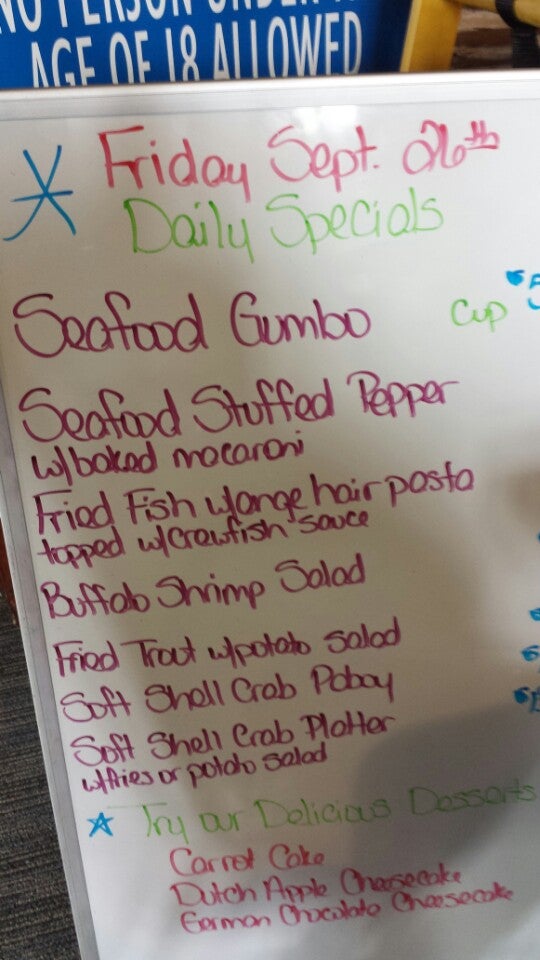 AGE OF 18 ALLOWED
Friday Sept. 26th
Daily Specials
Seafood Gumbo Cup
Seafood Stuffed Pepper
w/baked macaroni
Fried Fish w/ange hair pasta
topped w/crawfish sauce
Buffalo Shrimp Salad
Fried Trout w/potato salad
Soft Shell Crab Poboy
Soft Shell Crab Platter
w/fries or potato salad
Try our Delicious Desserts
Carrot Cake
Dutch Apple Cheesecake
German Chocolate Cheesecake